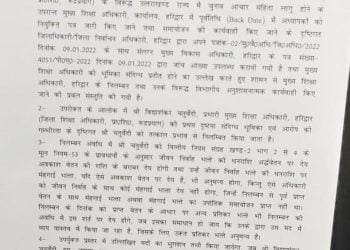 प्र0शि0, रूद्रप्रयाग) के विरूद्ध उत्तराखण्ड राज्य में चुनाव आचार संहिता लागू होने के
उपरान्त मुख्य शिक्षा अधिकारी, कार्यालय, हरिद्वार में पूर्वतिथि (Back Date) में अध्यापकों को
नियुक्ति पत्र जारी किए जाने तथा समायोजन की कार्यवाही किए जाने के दृष्टिगत
जिलाधिकारी/जिला निर्वाचन अधिकारी, हरिद्वार द्वारा अपने पत्रांक-02/मु0वै0अधि/जि0अधि0/2022
दिनांक 09.01.2022 के साथ संलग्न मुख्य विकास अधिकारी, हरिद्वार के पत्र संख्या-
4051/पी0ए0 दिनांक 09.01.2022 द्वारा जांच आख्या उपलब्ध करायी गयी है तथा मुख्य
शिक्षा अधिकारी की भूमिका संदिग्ध प्रतीत होने का उल्लेख करते हुए शासन से मुख्य शिक्षा
अधिकारी, हरिद्वार के निलम्बन तथा उनके विरूद्ध विभागीय अनुशासनात्मक कार्यवाही किए
जाने की प्रबल संस्तुति की गयी है।
2- उपरोक्त के आलोक में श्री विद्याशंकर चतुर्वेदी, प्रभारी मुख्य शिक्षा अधिकारी, हरिद्वार
(जिला शिक्षा अधिकारी, प्रा0शि0, रूद्रप्रयाग) को प्रथम दृष्टया संदिग्ध भूमिका एवं आरोप की
गम्भीरता के दृष्टिगत श्री चतुर्वेदी को तत्काल प्रभाव से निलम्बित किया जाता है।
3- निलम्बन अवधि में श्री चतुर्वेदी को वित्तीय नियम संग्रह खण्ड-2 भाग 2 से 4 के
मूल नियम-53 के प्राविधानों के अनुसार जीवन निर्वाह भत्ते की धनराशि अर्द्धवेतन पर देय
अवकाश वेतन की राशि के बराबर देय होगी तथा उन्हें जीवन निर्वाह भत्ते की धनराशि पर
मंहगाई भत्ता, यदि ऐसे अवकाश वेतन पर देय है, भी अनुमन्य होगा, किन्तु ऐसे अधिकारी
को जीवन निर्वाह के साथ कोई मंहगाई भत्ता देय नहीं होगा, जिन्हें निलम्बन से पूर्व प्राप्त
वेतन के साथ मंहगाई भत्ता अथवा मंहगाई भत्ते का उपांतिक समायोजन प्राप्त नहीं था।
निलम्बन के दिनांक को प्राप्त वेतन के आधार पर अन्य प्रतिकर भत्ते भी निलम्बन की
अवधि में इस शर्त पर देय होंगे, जब इसका समाधान हो जाय कि उनके द्वारा उस मद में
व्यय वास्तव में किया जा रहा है, जिसके लिए उक्त प्रतिकर भत्ते अनुमन्य है।
4- उपर्युक्त प्रस्तर में उल्लिखित मदों का भुगतान तभी किया जायेगा जब श्री